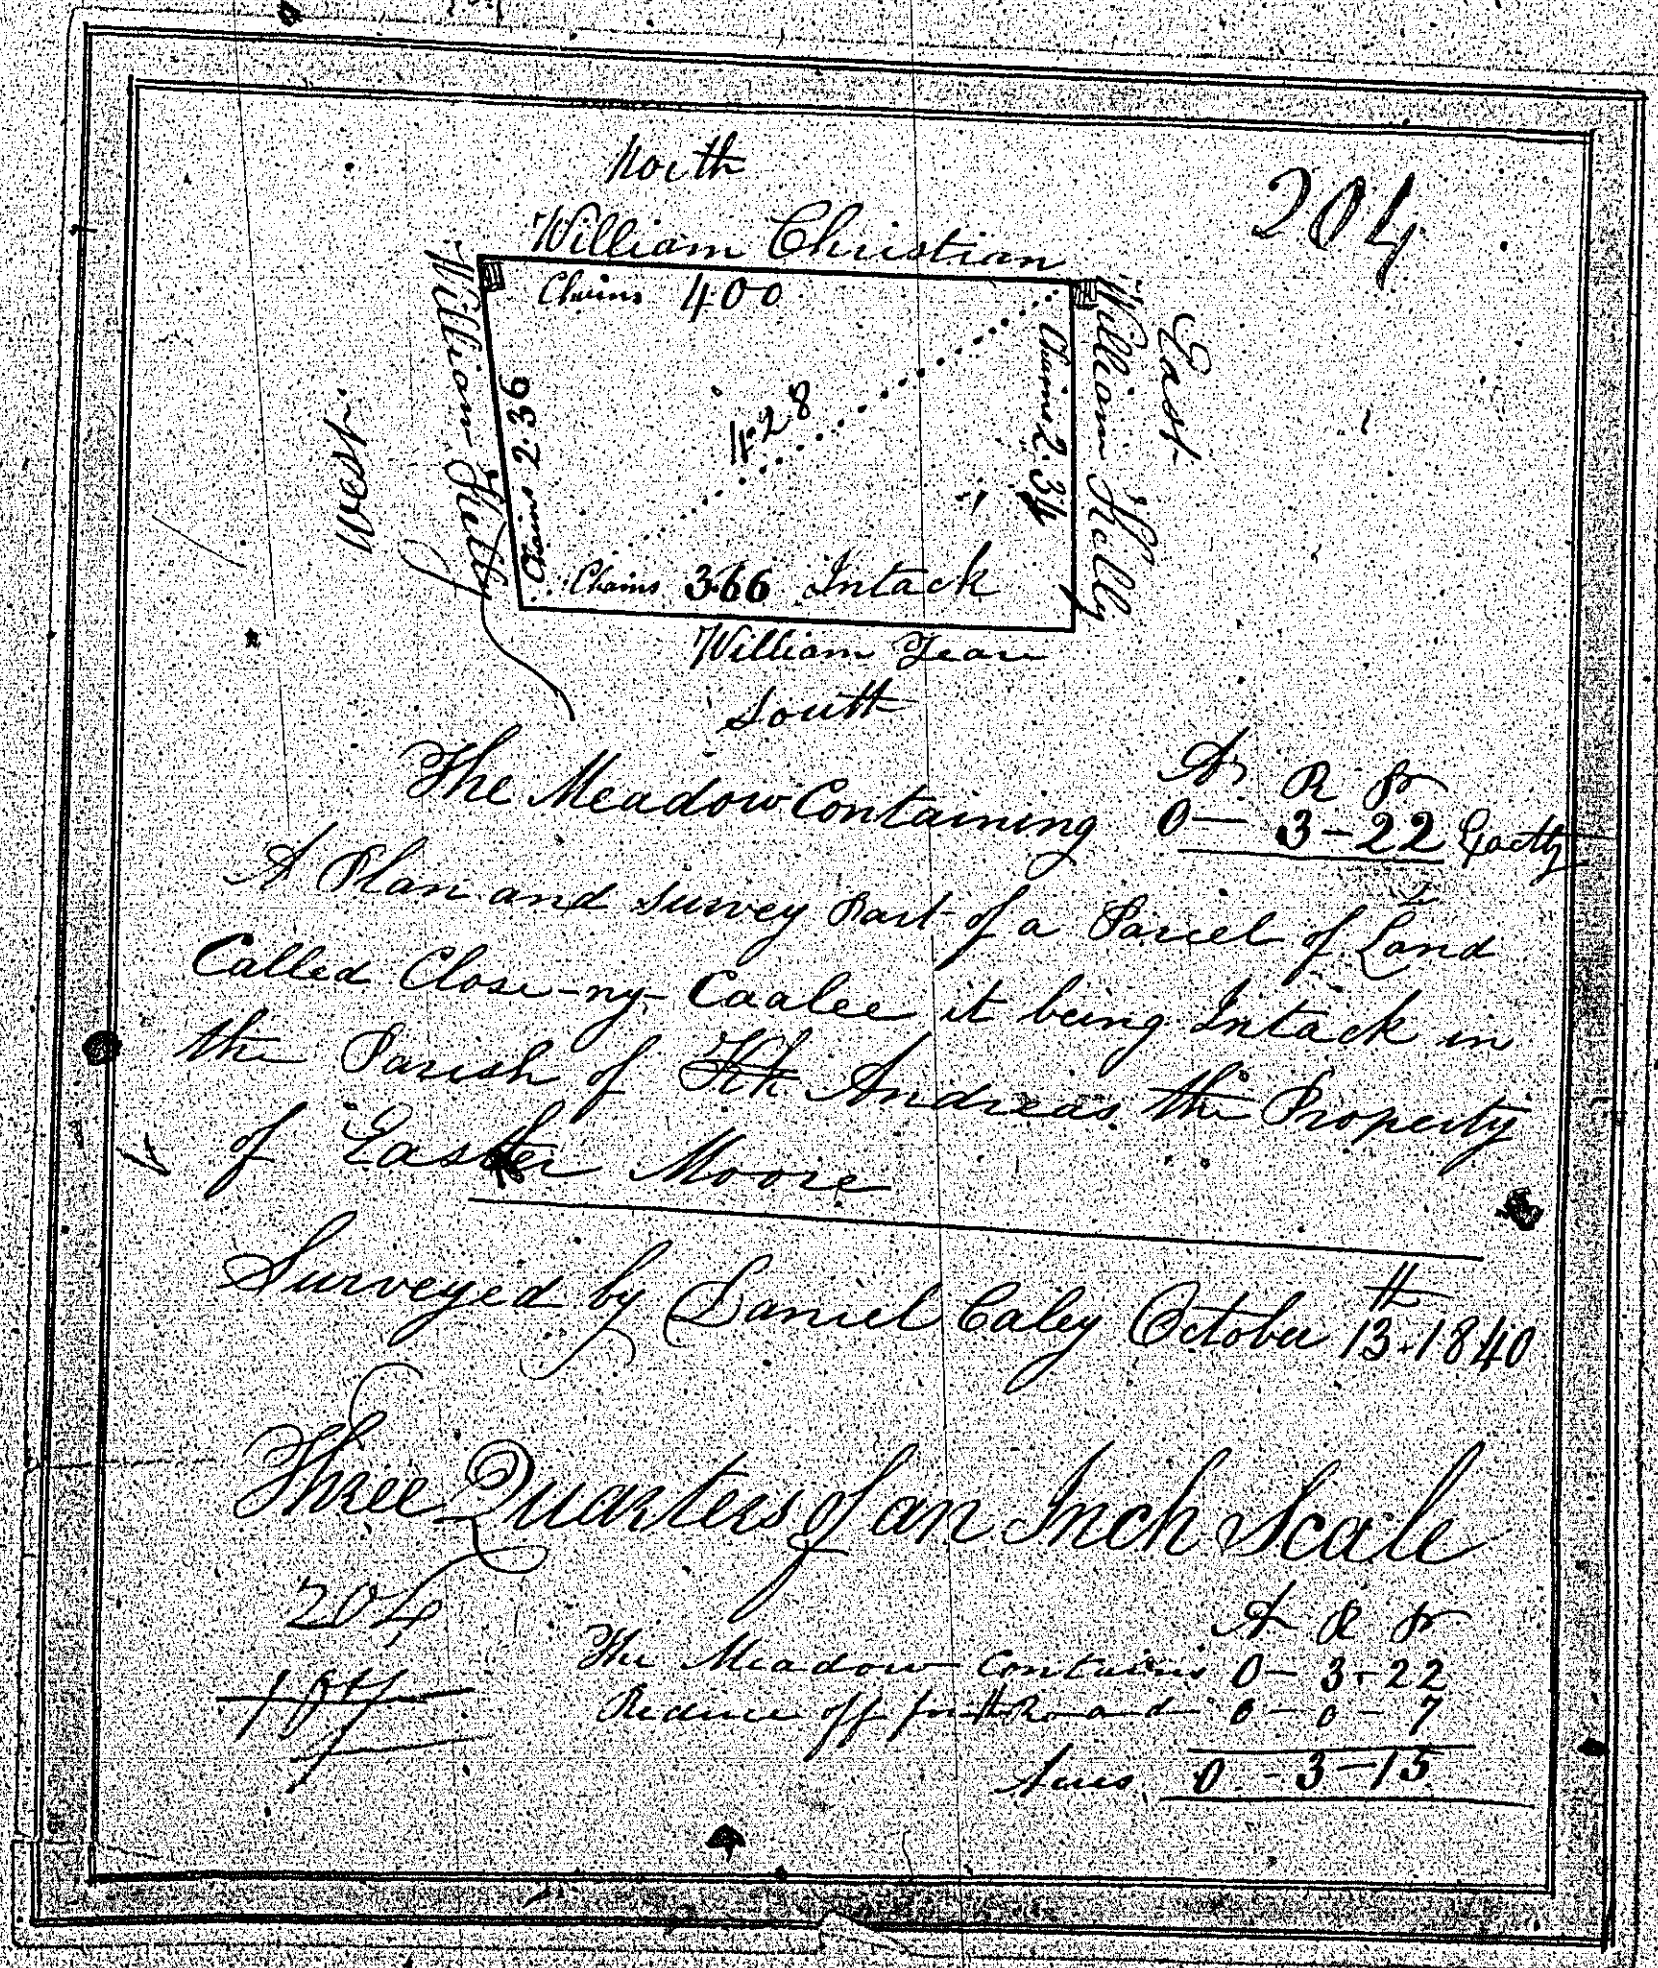 North
204
William Christian
Chains 400
William Kelly
West
Chains 2.36
4.28
Chains 2.34
William Kelly
East
Chains 3.66 Intack
William Teare
South
A R P
The Meadow Containing 0 — 3 - 22 Exactly
A Plan and survey Part of a Parcel of Land
Called Close-ny-Caalee it being Intack in
the Parish of Kk Andreas the Property
of Easther Moore
Surveyed by Daniel Caley October 13th 1840
Three Quarters of an Inch Scale
204
A R P
The Meadow Contains 0 - 3 - 22
Reduce off for the Road 0 - 0 - 7
Acres 0 - 3 - 15